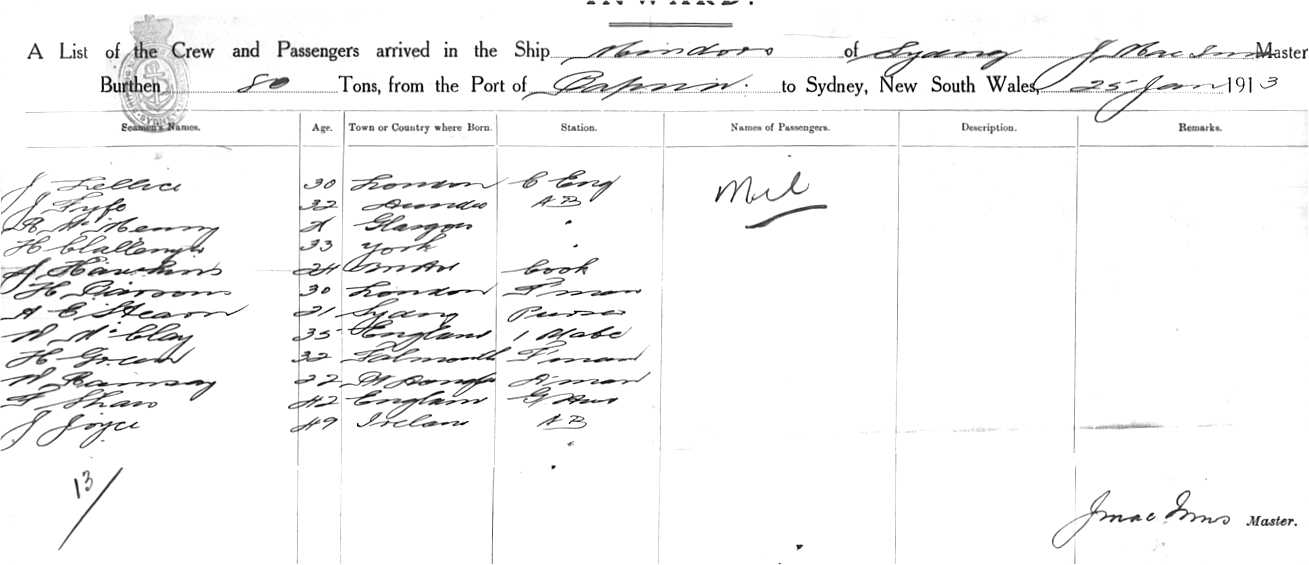 INWARD.
A List of the Crew and Passengers arrived in the Ship Mindoro of Sydney J Mac Innes Master
Burthen 80 Tons, from the Port of to Sydney, New South Wales, 25 Jan 1913
Seamen's Names. Age. Town or Country where Born. Station. Names of Passengers. Description. Remarks.
J 30 London C Eng Nil
J Fyfe 32 Dundee AB
R McHenry Glasgow "
H Challenger 33 York "
J Hawkins 24 Cook
H Parsons 30 London F'man
A E Hearn 21 Sydney Purser
W McClay 35 England 1 Mate
H Green 32 Falmouth F'man
W Ramsay 22
F Shaw 42 England
J Joyce 49 Ireland AB
13/
J Mac Innes Master.